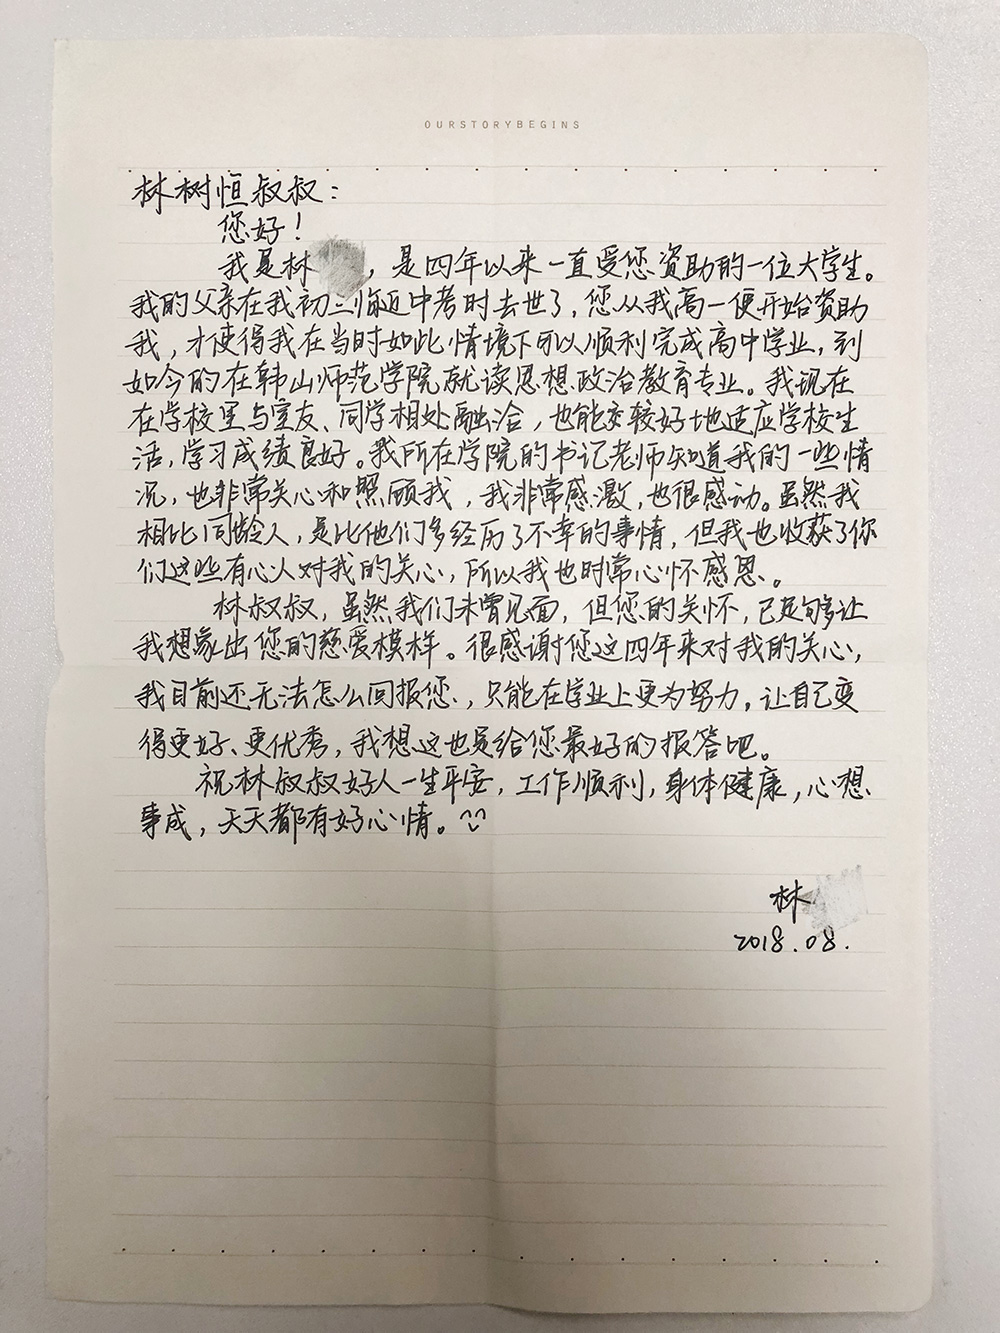 OURSTORYBEGINS
林树恒叔叔：
您好！
我是林，是四年以来一直受您资助的一位大学生。
我的父亲在我初三临近中考时去世了，您从我高一便开始资助
我，才使得我在当时如此情境下可以顺利完成高中学业，到
如今的在韩山师范学院就读思想政治教育专业。我现在
在学校里与室友、同学相处融洽，也能较好地适应学校生
活，学习成绩良好。我所在学院的书记老师知道我的一些情
况，也非常关心和照顾我，我非常感激，也很感动。虽然我
相比同龄人，是比他们多经历了不幸的事情，但我也收获了你
们这些有心人对我的关心，所以我也时常心怀感恩。
林叔叔，虽然我们未曾见面，但您的关怀，已足够让
我想象出您的慈爱模样。很感谢您这四年来对我的关心，
我目前还无法怎么回报您，只能在学业上更为努力，让自己变
得更好、更优秀，我想这也是给您最好的报答吧。
祝林叔叔好人一生平安，工作顺利，身体健康，心想
事成，天天都有好心情。
林
2018.08.